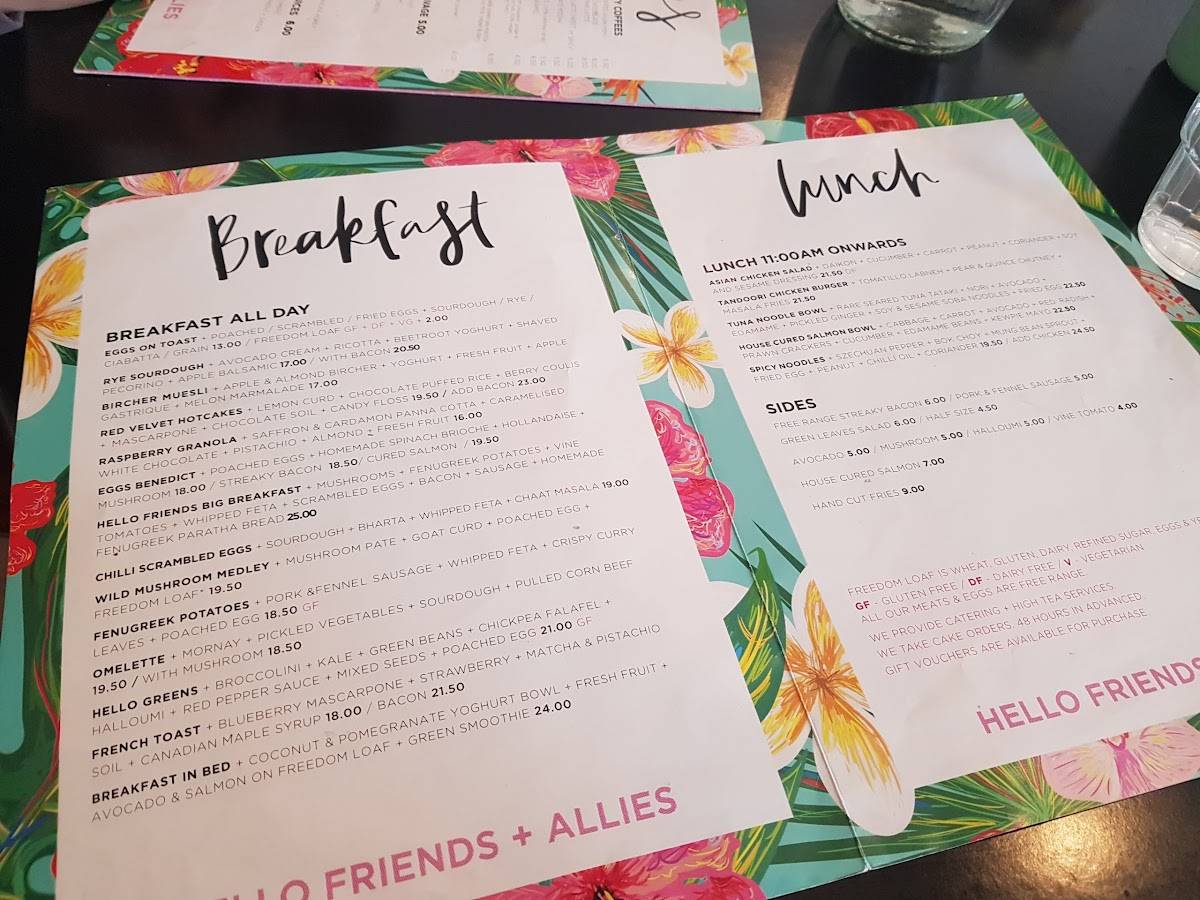 LIES
ICES 6.00
VAGE 5.00
Y COFFEES
Breakfast
BREAKFAST ALL DAY
EGGS ON TOAST + POACHED / SCRAMBLED / FRIED EGGS + SOURDOUGH / RYE /
CIABATTA / GRAIN 13.00 / FREEDOM LOAF GF + DF + VG + 2.00
RYE SOURDOUGH + AVOCADO CREAM + RICOTTA + BEETROOT YOGHURT + SHAVED
PECORINO + APPLE BALSAMIC 17.00 / WITH BACON 20.50
BIRCHER MUESLI + APPLE & ALMOND BIRCHER + YOGHURT + FRESH FRUIT + APPLE
GASTRIQUE + MELON MARMALADE 17.00
RED VELVET HOTCAKES + LEMON CURD + CHOCOLATE PUFFED RICE + BERRY COULIS
+ MASCARPONE + CHOCOLATE SOIL + CANDY FLOSS 19.50 / ADD BACON 23.00
RASPBERRY GRANOLA + SAFFRON & CARDAMON PANNA COTTA + CARAMELISED
WHITE CHOCOLATE + PISTACHIO + ALMOND + FRESH FRUIT 16.00
EGGS BENEDICT + POACHED EGGS + HOMEMADE SPINACH BRIOCHE + HOLLANDAISE +
MUSHROOM 18.00 / STREAKY BACON 18.50 / CURED SALMON / 19.50
HELLO FRIENDS BIG BREAKFAST + MUSHROOMS + FENUGREEK POTATOES + VINE
TOMATOES + WHIPPED FETA + SCRAMBLED EGGS + BACON + SAUSAGE + HOMEMADE
FENUGREEK PARATHA BREAD 25.00
CHILLI SCRAMBLED EGGS + SOURDOUGH + BHARTA + WHIPPED FETA + CHAAT MASALA 19.00
WILD MUSHROOM MEDLEY + MUSHROOM PATE + GOAT CURD + POACHED EGG +
FREEDOM LOAF* 19.50
FENUGREEK POTATOES + PORK &FENNEL SAUSAGE + WHIPPED FETA + CRISPY CURRY
LEAVES + POACHED EGG 18.50 GF
OMELETTE + MORNAY + PICKLED VEGETABLES + SOURDOUGH + PULLED CORN BEEF
19.50 / WITH MUSHROOM 18.50
HELLO GREENS + BROCCOLINI + KALE + GREEN BEANS + CHICKPEA FALAFEL +
HALLOUMI + RED PEPPER SAUCE + MIXED SEEDS + POACHED EGG 21.00 GF
FRENCH TOAST + BLUEBERRY MASCARPONE + STRAWBERRY + MATCHA & PISTACHIO
SOIL + CANADIAN MAPLE SYRUP 18.00 / BACON 21.50
BREAKFAST IN BED + COCONUT & POMEGRANATE YOGHURT BOWL + FRESH FRUIT +
AVOCADO & SALMON ON FREEDOM LOAF + GREEN SMOOTHIE 24.00
LLO FRIENDS + ALLIES
Lunch
LUNCH 11:00AM ONWARDS
ASIAN CHICKEN SALAD + DAIKON + CUCUMBER + CARROT + PEANUT + CORIANDER + SOY
AND SESAME DRESSING 21.50 GF
TANDOORI CHICKEN BURGER + TOMATILLO LABNEH + PEAR & QUINCE CHUTNEY +
MASALA FRIES 21.50
TUNA NOODLE BOWL + RARE SEARED TUNA TATAKI + NORI + AVOCADO +
EDAMAME + PICKLED GINGER + SOY & SESAME SOBA NOODLES + FRIED EGG 22.50
HOUSE CURED SALMON BOWL + CABBAGE + CARROT + AVOCADO + RED RADISH +
PRAWN CRACKERS + CUCUMBER + EDAMAME BEANS + KEWPIE MAYO 22.50
SPICY NOODLES + SZECHUAN PEPPER + BOK CHOY + MUNG BEAN SPROUT +
FRIED EGG + PEANUT + CHILLI OIL + CORIANDER 19.50 / ADD CHICKEN 24.50
SIDES
FREE RANGE STREAKY BACON 6.00 / PORK & FENNEL SAUSAGE 5.00
GREEN LEAVES SALAD 6.00 / HALF SIZE 4.50
AVOCADO 5.00 / MUSHROOM 5.00 / HALLOUMI 5.00 / VINE TOMATO 4.00
HOUSE CURED SALMON 7.00
HAND CUT FRIES 9.00
FREEDOM LOAF IS WHEAT, GLUTEN, DAIRY, REFINED SUGAR, EGGS & Y
GF - GLUTEN FREE / DF - DAIRY FREE / V - VEGETARIAN
ALL OUR MEATS & EGGS ARE FREE RANGE
WE PROVIDE CATERING + HIGH TEA SERVICES
WE TAKE CAKE ORDERS, 48 HOURS IN ADVANCED
GIFT VOUCHERS ARE AVAILABLE FOR PURCHASE
HELLO FRIENDS